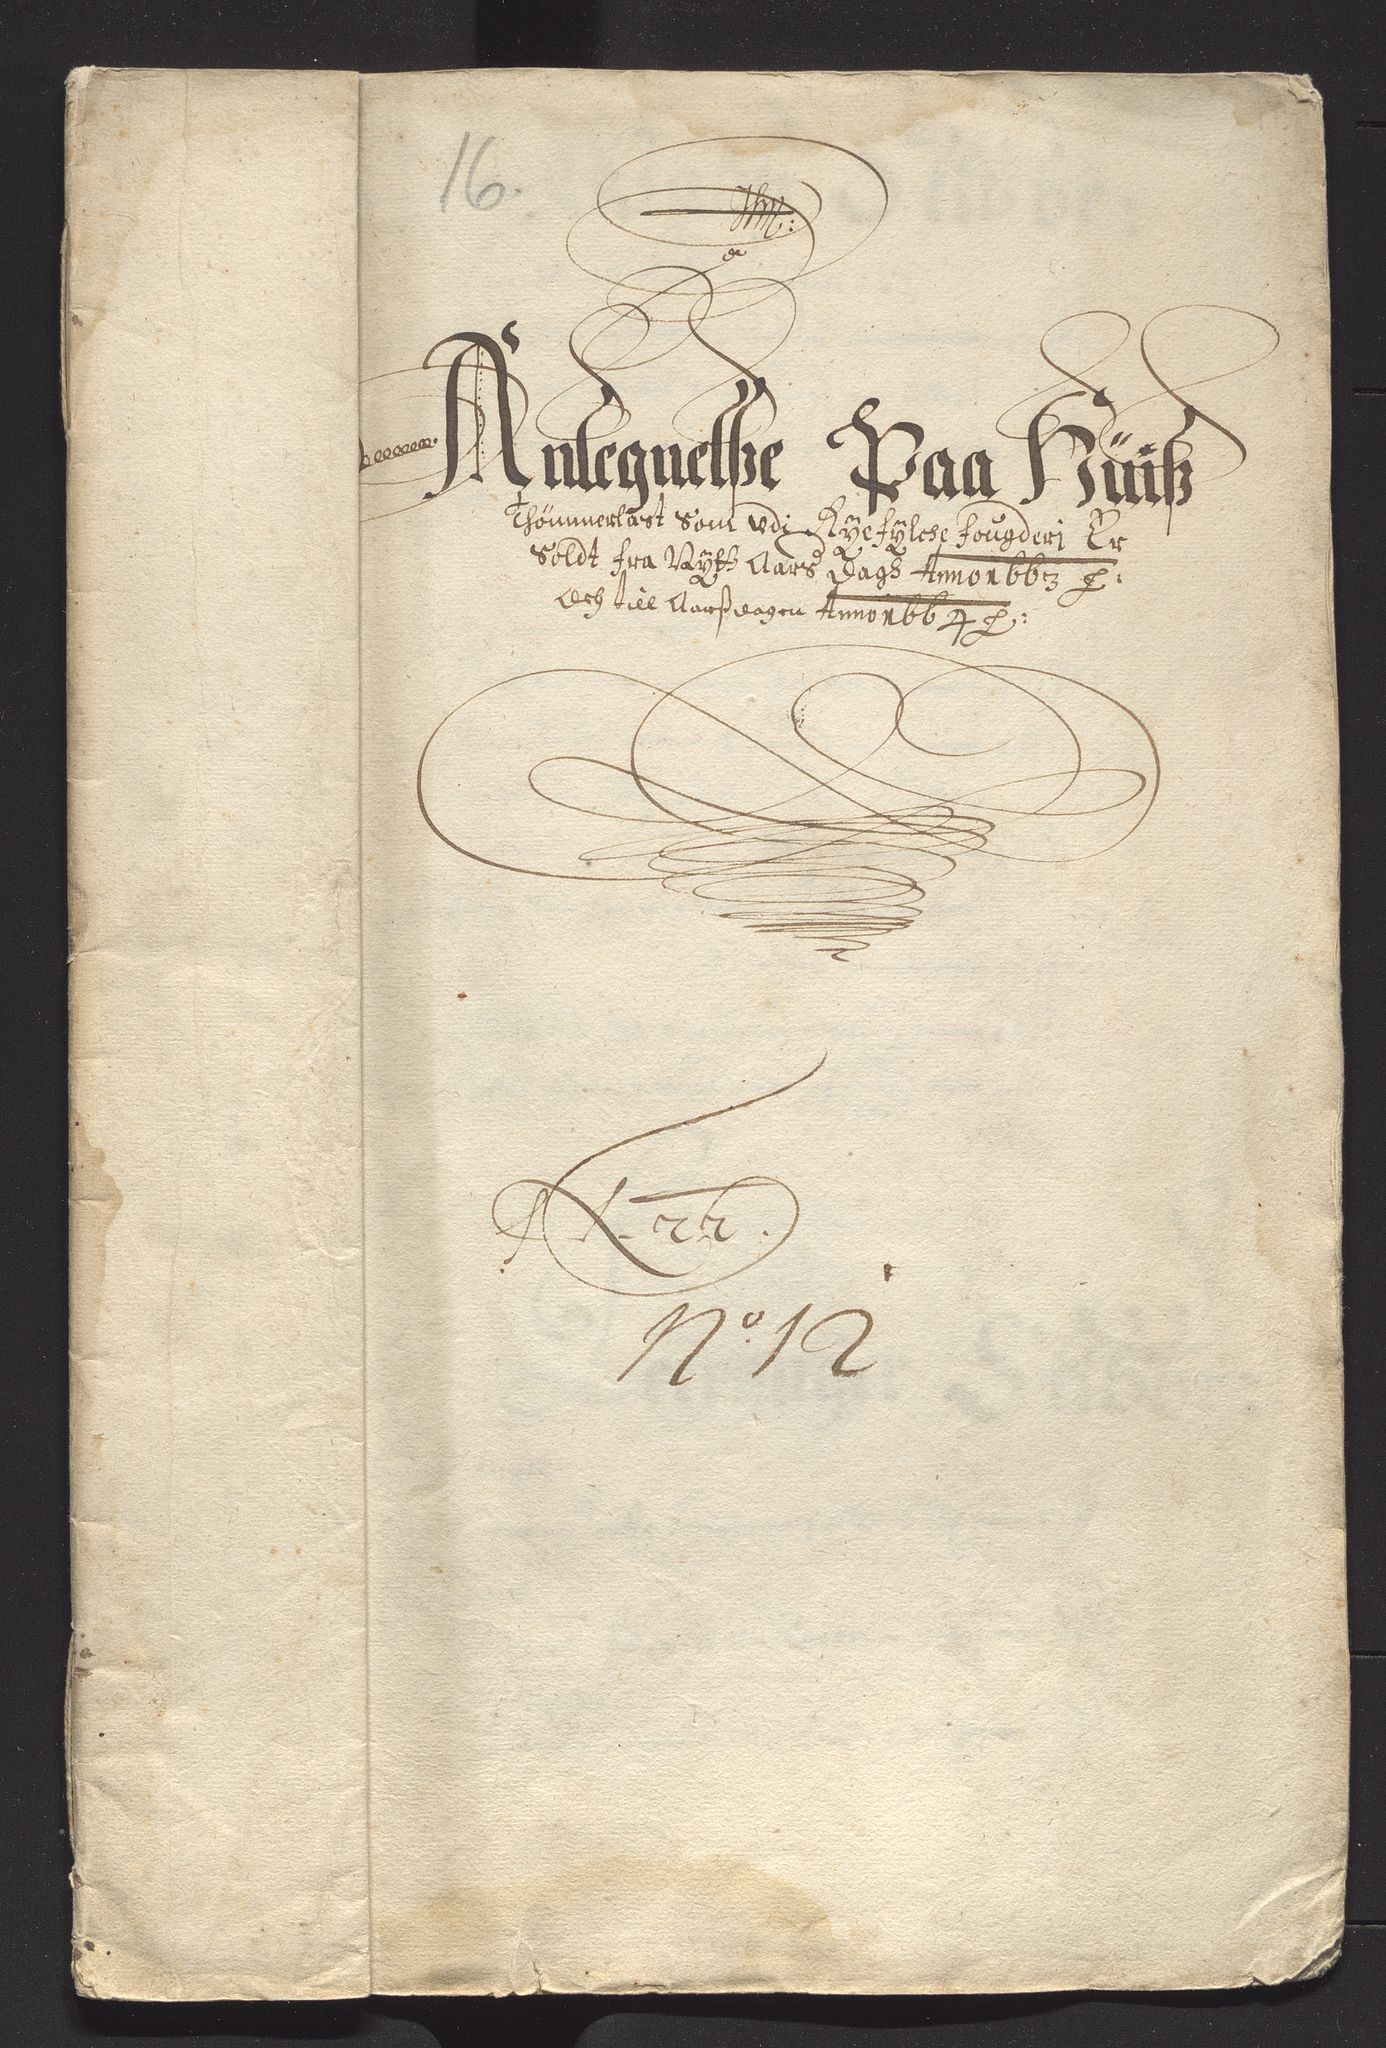 16.
Antegnelße Paa Huuß
Thømmerlast som udi Ryefylche fougderi Er
Soldt fra Nytt Aars Dags Anno 1663
Och till Aarßdagen Anno 1664
No. 12